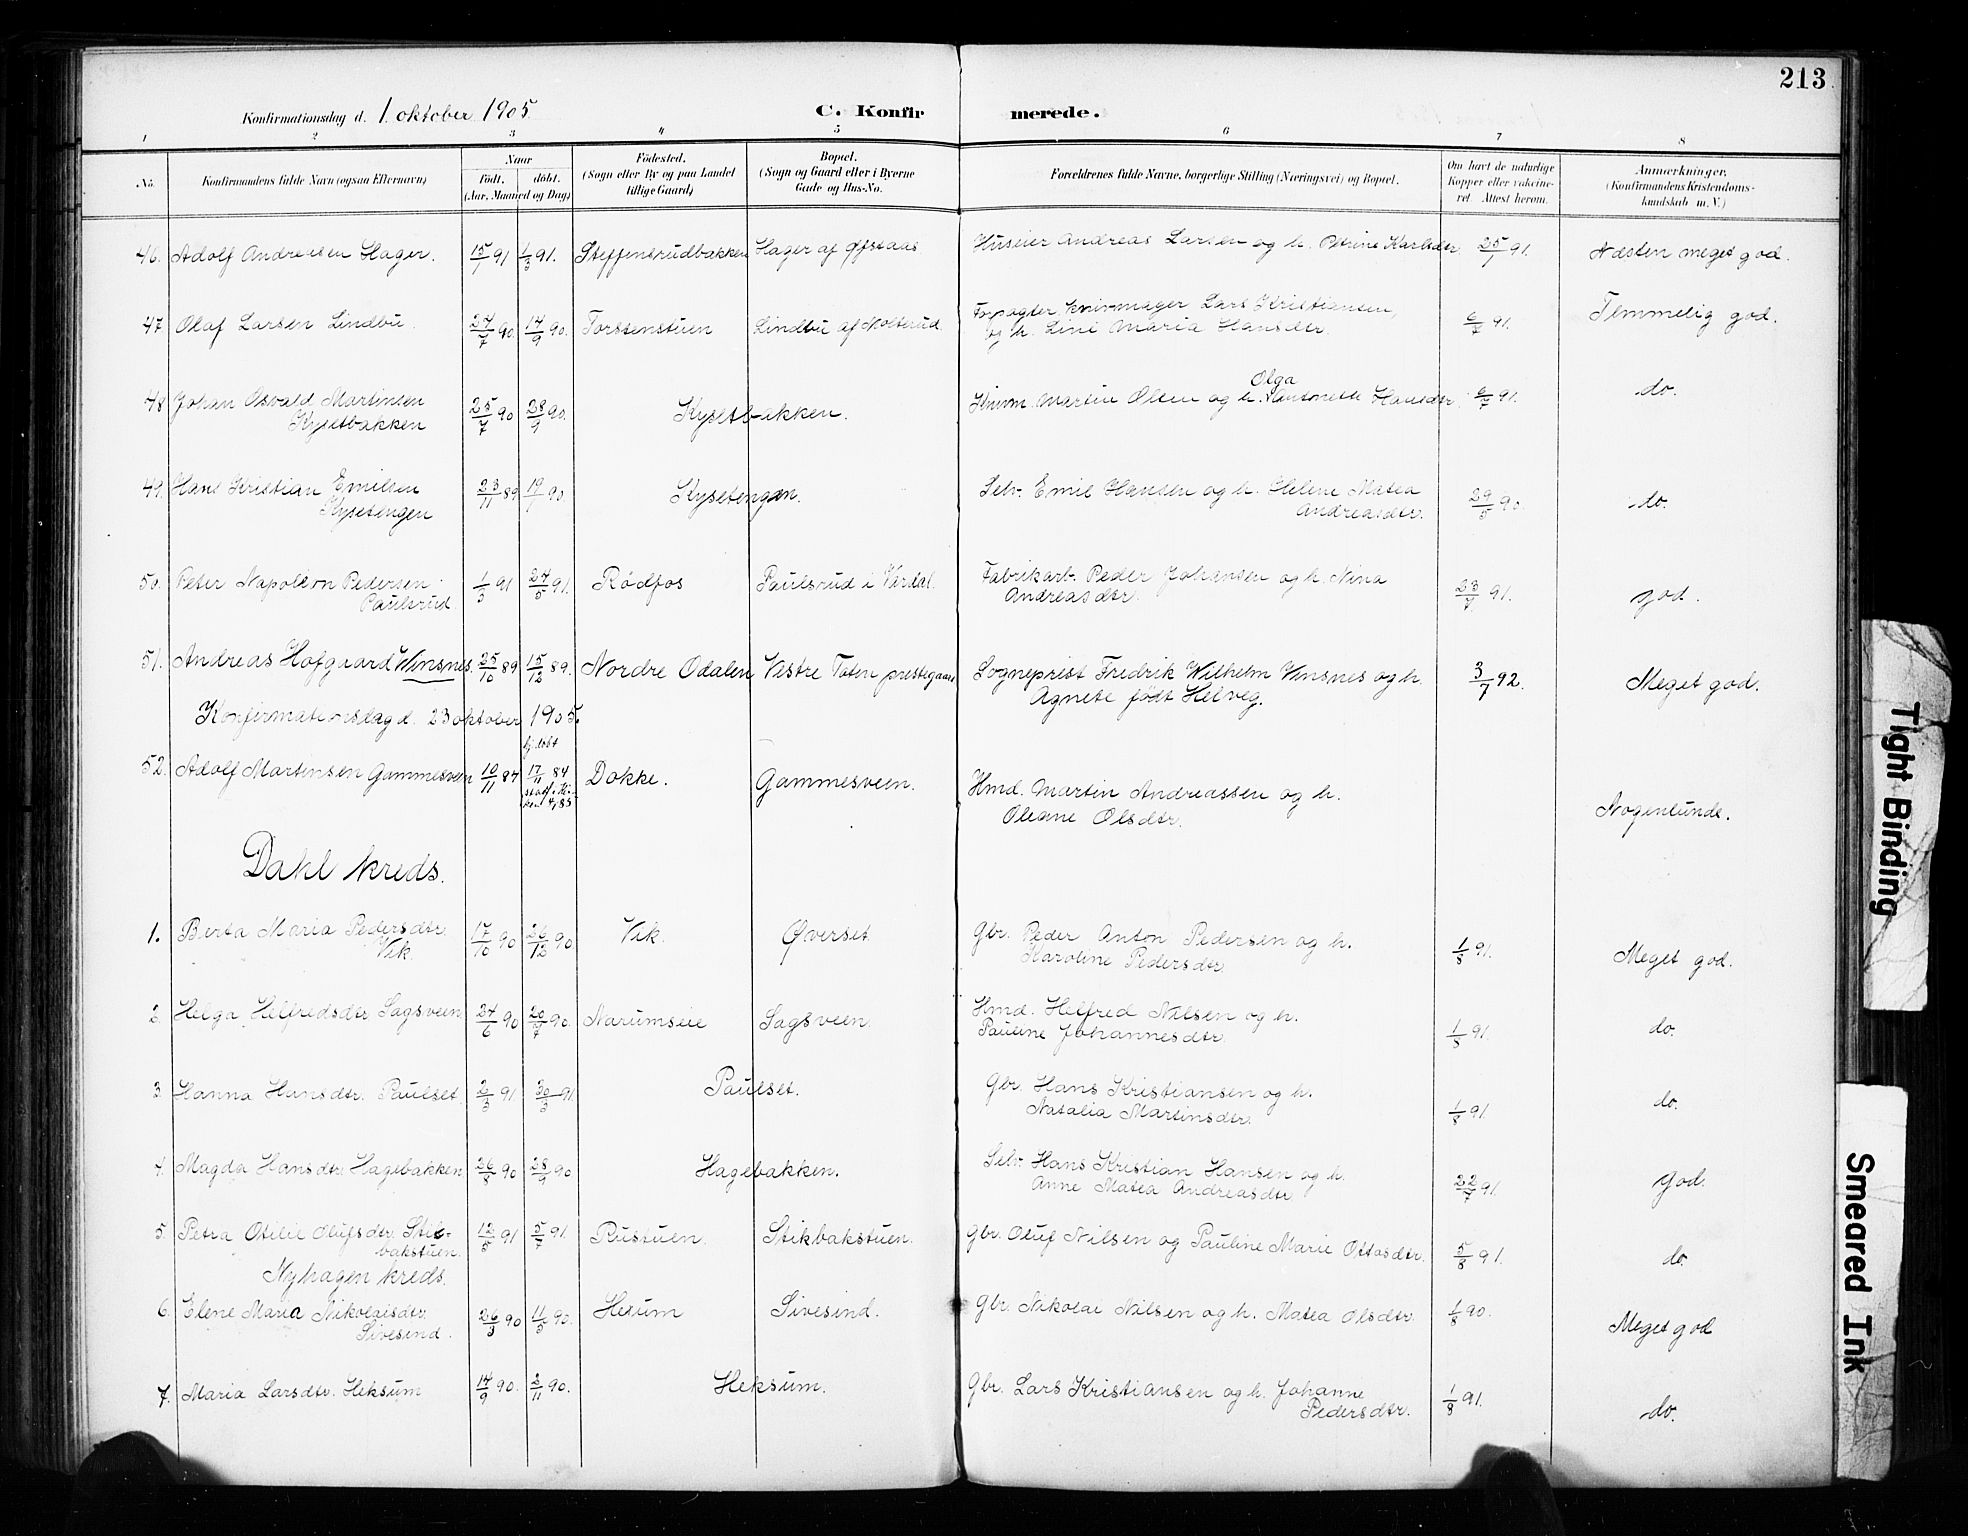 213
Konfirmationsdag d. 1. oktober 1905. C. Konfirmerede.
1 2 3 4 5 6 7 8
No. Konfirmandens fulde Navn (ogsaa Efternavn) Naar Födt. döbt. (Aar, Maaned og Dag) Födested. (Sogn eller By og paa Landet tillige Gaard) Bopæl. (Sogn og Gaard eller i Byerne Gade og Hus-No. Forældrenes fulde Navne, borgerlige Stilling (Næringsvei) og Bopæl. Om havt de naturlige Kopper eller vakcineret. Attest herom. Anmærkninger. (Konfirmandens Kristendomskundskab m. V.)
46. Adolf Andreasen Hager. 15/1 91 1/3 91. Steffensrudbakken Hager af Öfstaas Huseier Andreas Larsen og h. Petrine Karlsdtr. 25/1 91. Næsten meget god.
47. Olaf Larsen Lindbu. 24/7 90. 14/9 90. Torstenstuen Lindbu af Noltsrud Forpagter, knivmager Lars Kristiansen,
og h. Lini Maria Hansdtr. 6/7 91. Temmelig god.
48 Johan Osvald Martinsen
Kysetbakken 25/7 90 28/9 90. Kysetbakken. Knivm. Martin Olsen og h. Olga Antonette Hansdtr. 6/7 91. do.
49. Hans Kristian Emilsen
Kysetengen 23/11 89 19/1 90 Kysetengen. Selv. Emil Hansen og h. Helene Matea
Andreasdtr. 29/5 90. do.
50. Peter Napoleon Pedersen
Paulsrud. 1/3 91 24/5 91. Rödfos Paulsrud i Vardal. Fabrikarb. Peder Johansen og h. Nina
Andreasdtr. 23/7 91. god.
51. Andreas Hofgaard Vinsnes. 25/10 89 15/12 89. Nordre Odalen Vestre Toten prestegaard Sogneprest Fredrik Wilhelm Vinsnes og h.
Agnete födt Helveg. 3/7 92. Meget god.
Konfirmationsdag d. 23 oktober 1905.
52. Adolf Martinsen Gammesveen 10/11 84 hj.döbt 17/11 84 Dokke. Gammesveen. Hmd. Martin Andreassen og h.
Oleane Olsdtr. Nogenlunde.
Dahl kreds.
1. Berta Maria Pedersdtr.
Vik 17/10 90 26/12 90 Vik. Øverset Gbr. Peder Anton Pedersen og h.
Karoline Pedersdtr. 1/8 91. Meget god.
2. Helga Helfredsdtr Sagsveen 24/6 90 20/7 90. Narumseie Sagsveen. Hmd. Helfred Nilsen og h.
Pauline Johannesdtr. 1/8 91. do.
3. Hanna Hansdtr. Paulset. 2/3 91. 30/3 91 Paulset. Gbr. Hans Kristiansen og h.
Natalia Martinsdtr. 1/8 91 do.
4. Magda Hansdtr. Hagebakken 26/8 90 28/9 90 Hagebakken. Selv. Hans Kristian Hansen og h.
Anne Matea Andreasdtr. 22/7 91. god.
5. Petra Otilie Olufsdtr. Stik-
bakstuen. 12/5 91 5/7 91. Rustuen. Stikbakstuen. Gbr. Oluf Nilsen og Pauline Marie Ottosdtr. 5/8 91. do.
Nyhagen kreds.
6. Elene Maria Nikolaisdtr.
Sivesind. 26/3 90 11/5 90. Hexum Sivesind. Gbr. Nikolai Nilsen og h. Matea Olsdtr. 1/8 90. Meget god
7. Maria Larsdtr. Heksum 14/9 90. 2/11 90. Heksum. Gbr. Lars Kristiansen og h. Johanne
Pedersdtr. 1/8 91. do.
Tight Binding
Smeared Ink